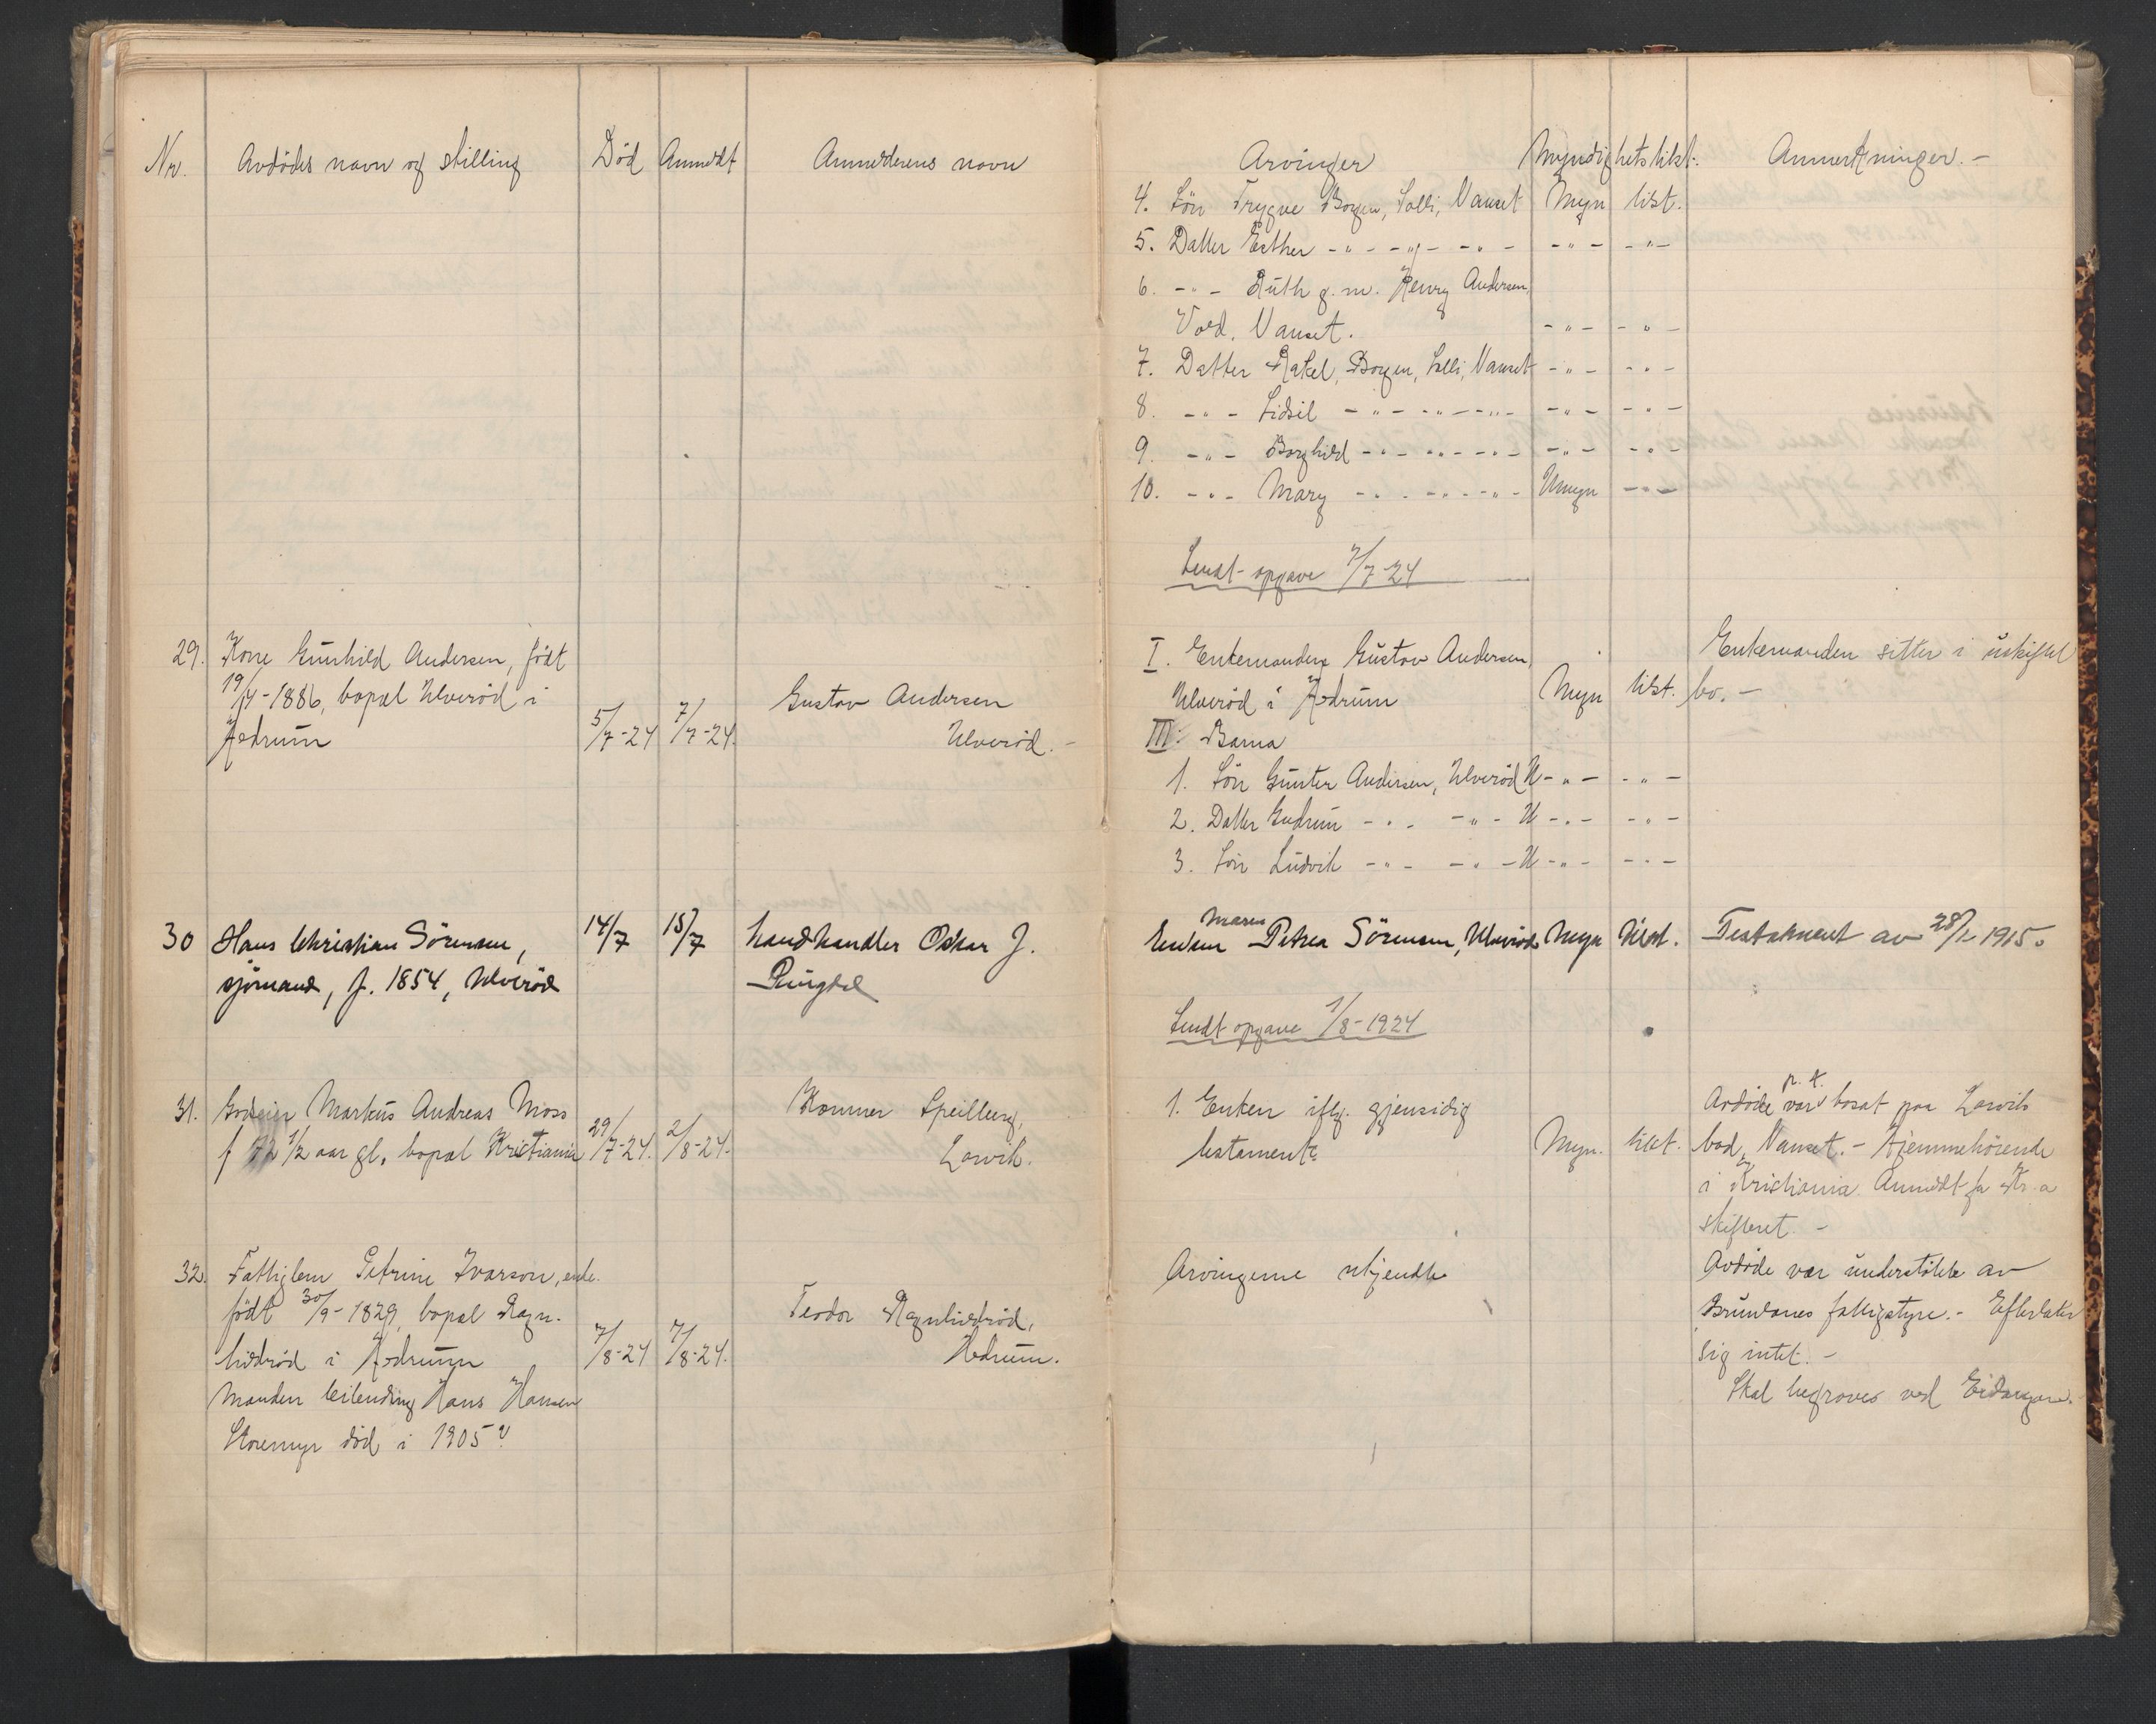 Nr. Avdødes navn og stilling Död Anmeldt Anmelderens navn
Arvinger Myndighet tilst. Anmerkninger. -
4. Sön Trygve Borgen, Solli, Nanset Myn tilst.
5. Datter Esther - " - - " - - " - - " - - " -
6. - " - Ruth g. m. Henry Andersen,
Vold. Nanset. - " - - " -
7. Datter Rakel, Borgen, Solli, Nanset - " - - " -
8. - " - Lidsil - " - - " - - " - - " - - " -
9. - " - Borghild - " - - " - - " - - " - - " -
10. - " - Mary - " - - " - - " - Umyn - " -
Sendt opgave 7/7-24
29. Kone Gunhild Andersen, født
19/4-1886, bopæl Ulveröd i
Hedrum 5/7-24 7/7-24.
Gustav Andersen
Ulveröd. -
I. Enkemanden Gustav Andersen,
Ulveröd i Hedrum Myn tilst.
III. Barna
1. Sön Gunter Andersen, Ulveröd U - " - - " -
2. Datter Gudrun - " - - " - U - " - - " -
3. Sön Ludvik - " - - " - U - " - - " -
Enkemanden sitter i uskiftet
bo. -
30 Hans Christian Sörensen,
sjömand, f. 1854, Ulveröd
14/7 15/7 Landhandler Oskar J.
Ringdal
Maren
Enken Petrea Sörensen, Ulveröd Myn tilst. Testament av 28/1 1915.
Sendt opgave 1/8-1924
31. Godseier Markus Andreas Moss
f 72 1/2 aar gl. bopæl Kristiania 29/7-24. 2/8-24.
Konner Speilberg,
Larvik.
1. Enken iflg. gjensidig
testamente Myn. tilst.
p. t.
Avdöde var bosat paa Larvik
bad, Nanset. - Hjemmehörende
i Kristiania Anmeldt fra Kr.a
skifteret. -
32. Fattiglem Petrine Ivarson, enke.
födt 30/9-1829, bopæl Ragn-
hildröd i Hedrum 7/8-24 7/8-24.
Manden leilending Hans Hansen
Storemyr död i 1905?
Teodor Ragnhildröd,
Hedrum.
Arvingerne ukjendte
Avdöde var understöttet av
Brunlanes fattigstyre. - Efterlater
sig intet. -
Skal begraves ved Eidanger.